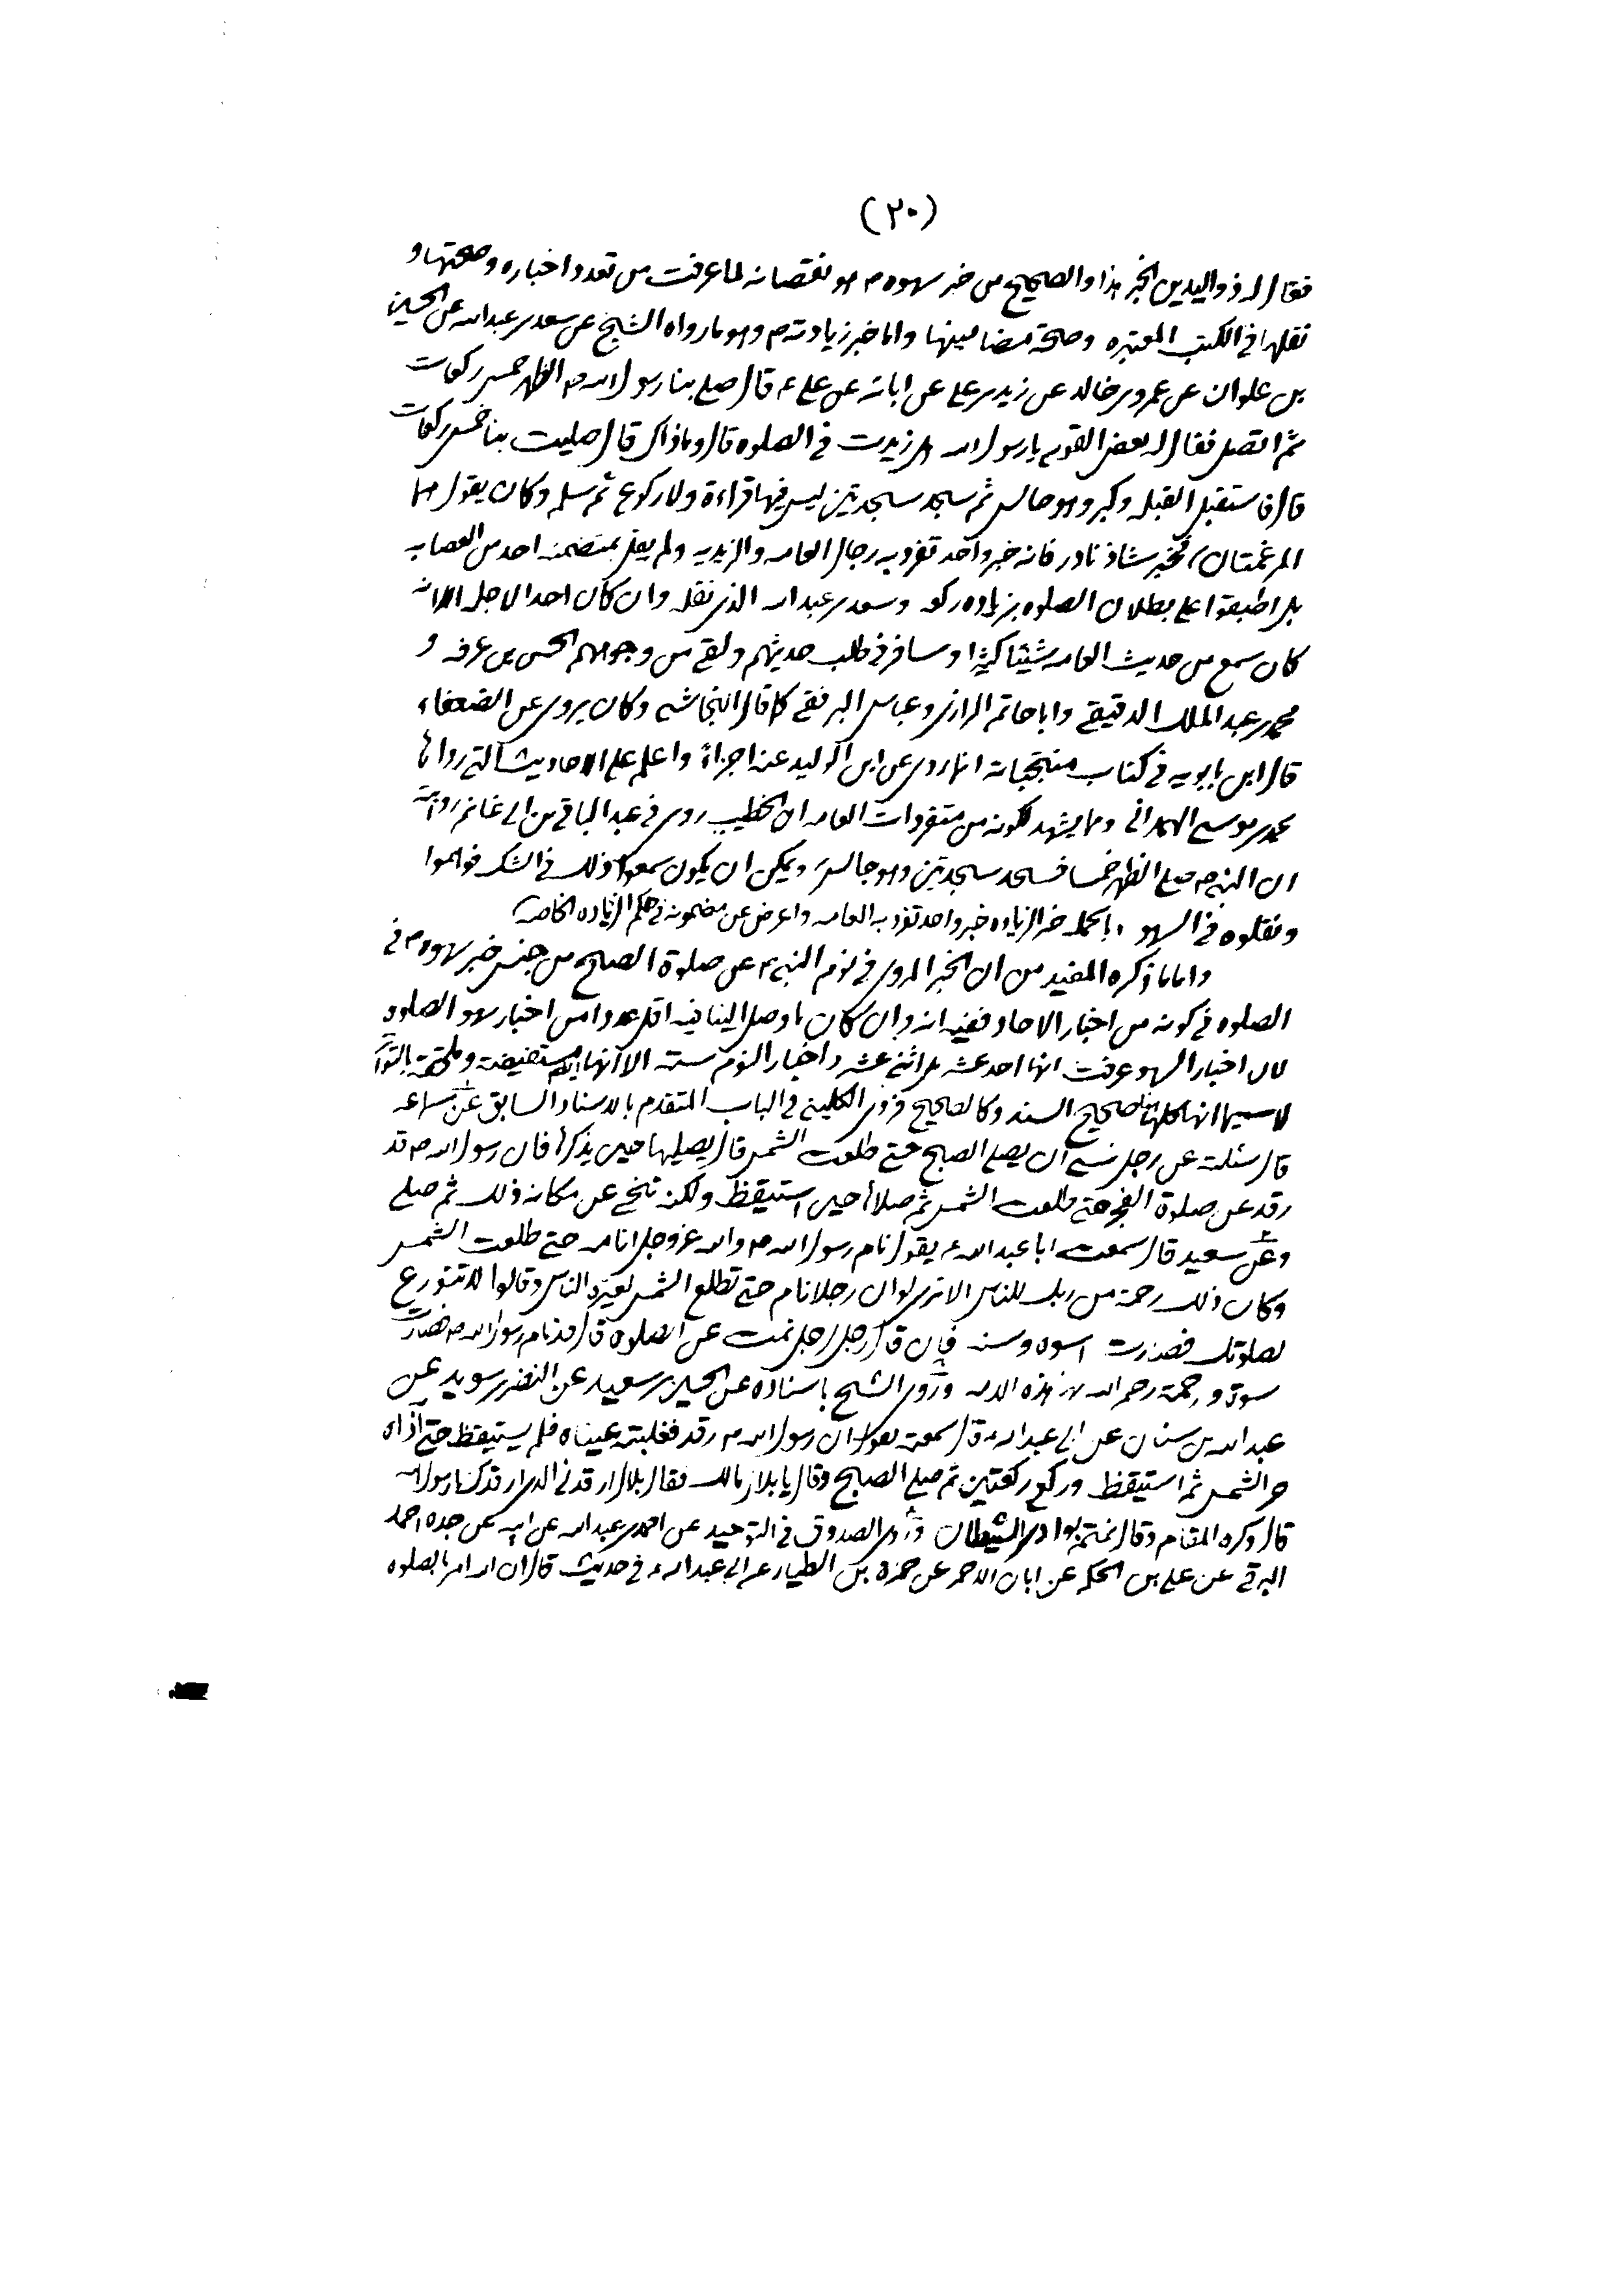 (٢٠)
فقال له ذو اليدين الخبر هذا والصحيح من خبر سهوه ص هو نقصانه لما عرفت من تعدد اخباره وصحتها و
نقلها في الكتب المعتبره وصحة مضامينها واما خبر زيادته ص وهو ما رواه الشيخ عن سعد بن عبدالله عن الحسين
بن علوان عن عمرو بن خالد عن زيد بن علي عن ابائه عن علي ع قال صلى بنا رسول الله ص الظهر خمس ركعات
ثم انفتل فقال له بعض القوم يا رسول الله هل زيدت في الصلوه قال وما ذاك قال صليت بنا خمس ركعات
قال فاستقبل القبله وكبر وهو جالس ثم سجد سجدتين ليس فيها قراءة ولا ركوع ثم سلم وكان يقول هما
المرغمتان) فخبر شاذ نادر فانه خبر واحد تفرد به رجال العامه والزيديه ولم يعمل بمتضمنه احد من العصابه
بل اطبقوا على بطلان الصلوه بزياده ركعه وسعد بن عبدالله الذي نقله وان كان احد الاجله الا انه
كان سمع من حديث العامه شيئا كثيرا وسافر في طلب حديثهم ولقى من وجوههم الحسن بن عرفه و
محمد بن عبد الملك الدقيقي وابا حاتم الرازي وعباس البرفقي كما قال النجاشي وكان يروى عن الضعفاء
قال ابن بابويه في كتاب منتخباته انه روى عن ابن الوليد عنه اجزاء واعلم على الاحاديث التي رواها
محمد بن موسى الهمداني ومما يشهد لكونه من متفردات العامه ان الخطيب روى في عبد الباقي بن ابي غانم روايته
ان النبي ص صلى الظهر خمسا فسجد سجدتين وهو جالس ويمكن ان يكون سمعوا ذلك في الشك فوهموا
ونقلوه في السهو وبالجمله خبر الزياده خبر واحد تفرد به العامه واعرض عن مضمونه في حكم الزياده الخاصه
واما ما ذكره المفيد من ان الخبر المروى في نوم النبي ع عن صلوة الصبح من جنس خبر سهوه ص في
الصلوه في كونه من اخبار الاحاد ففيه انه وان كان ما وصل الينا فيه اقل عددا من اخبار سهو الصلوه
لان اخبار السهو عرفت انها احد عشر بل اثنى عشر واخبار النوم سته الا انها ايضا مستفيضة وملحقة بالتواتر
لاسيما انها كلها صحيح السند وكالصحيح فروى الكليني في الباب المتقدم بالاسناد السابق عن سماعه
قال سئلته عن رجل نسي ان يصلي الصبح حتى طلعت الشمس قال يصليها حين يذكرها فان رسول الله ص قد
رقد عن صلوة الفجر حتى طلعت الشمس ثم صلاها حين استيقظ ولكنه تنحى عن مكانه ذلك ثم صلى
وعن سعيد قال سمعت ابا عبدالله ع يقول نام رسول الله ص والله عز وجل انامه حتى طلعت الشمس
وكان ذلك رحمة من ربك للناس الا ترى لو ان رجلا نام حتى تطلع الشمس لعيره الناس وقالوا لا تتورع
لصلوتك فصارت اسوه وسنه فان قال رجل لرجل نمت عن الصلوه قال قد نام رسول الله ص فصارت
اسوة ورحمة رحم الله بها هذه الامه وروى الشيخ باسناده عن الحسين بن سعيد عن النضر بن سويد عن
عبدالله بن سنان عن ابي عبدالله ع قال سمعته يقول ان رسول الله ص رقد فغلبته عيناه فلم يستيقظ حتى آذاه
حر الشمس ثم استيقظ وركع ركعتين ثم صلى الصبح وقال يا بلال مالك فقال بلال ارقدني الذي ارقدك يا رسول الله
قال وكره المقام وقال نمتم بوادي الشيطان وروى الصدوق في التوحيد عن احمد بن عبدالله عن ابيه عن جده احمد
البرقي عن علي بن الحكم عن ابان الاحمر عن حمزه بن الطيار عن ابي عبدالله ع في حديث قال ان الله امر بالصلوه